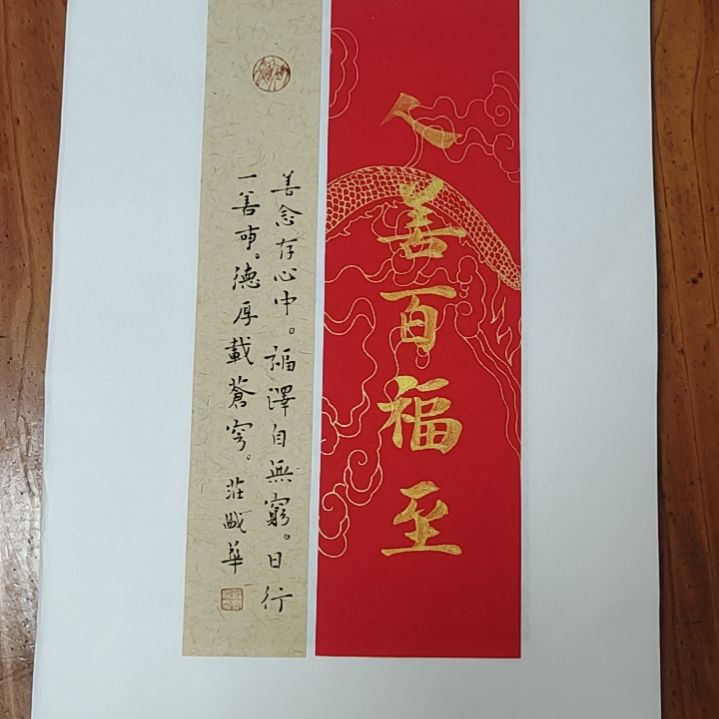 人善百福至
善念存心中。福澤自無窮。日行
一善事。德厚載蒼穹。莊 華